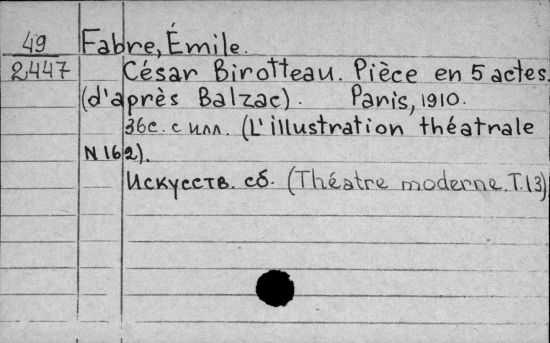 49
2447
Fabre, Émile.
César Birotteau. Pièce en 5 actes.
(d'après Balzac). Paris, 1910.
36с. с илл. (L'illustration théatrale
N 162).
Искусств. сб. (Théatre moderne. T. 13)